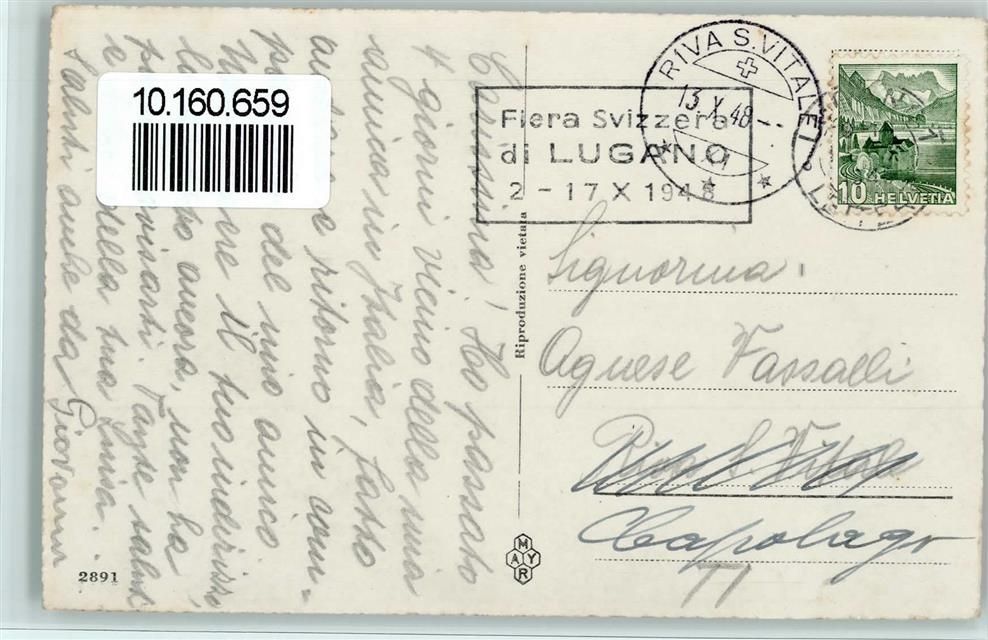 Carissima! Ho passato
4 giorni vicino della mia
amica in Italia, fatto
e ritorno in com-
del mio amico
ere il tuo indirizzo,
ancora, non ho
visarti. Tante salut
e della tua Luisa.
Saluti anche da Giovanni
10.160.659
2891
Riproduzione vietata
MAYR
Fiera Svizzera
di LUGANO
2 - 17 X 1948
RIVA S. VITALE
13.X.48
10 HELVETIA
Signorina
Agnese Vassalli
Riva S. Vitale
Capolago
TI